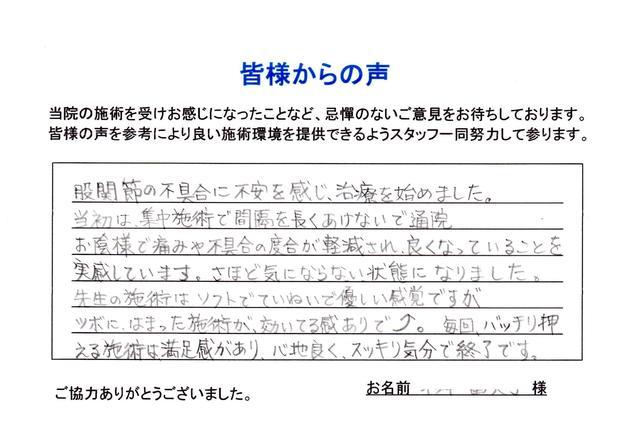 皆様からの声
当院の施術を受けお感じになったことなど、忌憚のないご意見をお待ちしております。
皆様の声を参考により良い施術環境を提供できるようスタッフ一同努力して参ります。
股関節の不具合に不安を感じ、治療を始めました。
当初は、集中施術で間隔を長くあけないで通院
お陰様で痛みや不具合の度合が軽減され、良くなっていることを
実感しています。さほど気にならない状態になりました。
先生の施術はソフトでていねいで優しい感覚ですが
ツボに、はまった施術が、効いてる感ありで⤴。毎回、バッチリ押
える施術は、満足感があり、心地良く、スッキリ気分で終了です。
ご協力ありがとうございました。
お名前 様